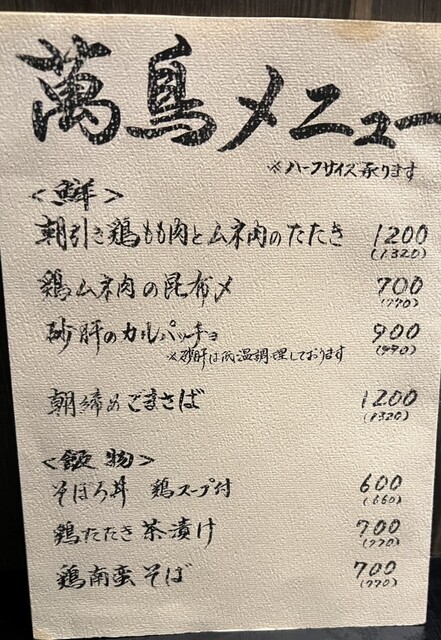 萬鳥メニュー
※ハーフサイズ承ります
<鮮>
朝引き鶏もも肉とムネ肉のたたき 1200
(1320)
鶏ムネ肉の昆布〆 700
(770)
砂肝のカルパッチョ 900
(990)
※砂肝は低温調理しております
朝締めごまさば 1200
(1320)
<飯物>
そぼろ丼 鶏スープ付 600
(660)
鶏たたき茶漬け 700
(770)
鶏南蛮そば 700
(770)